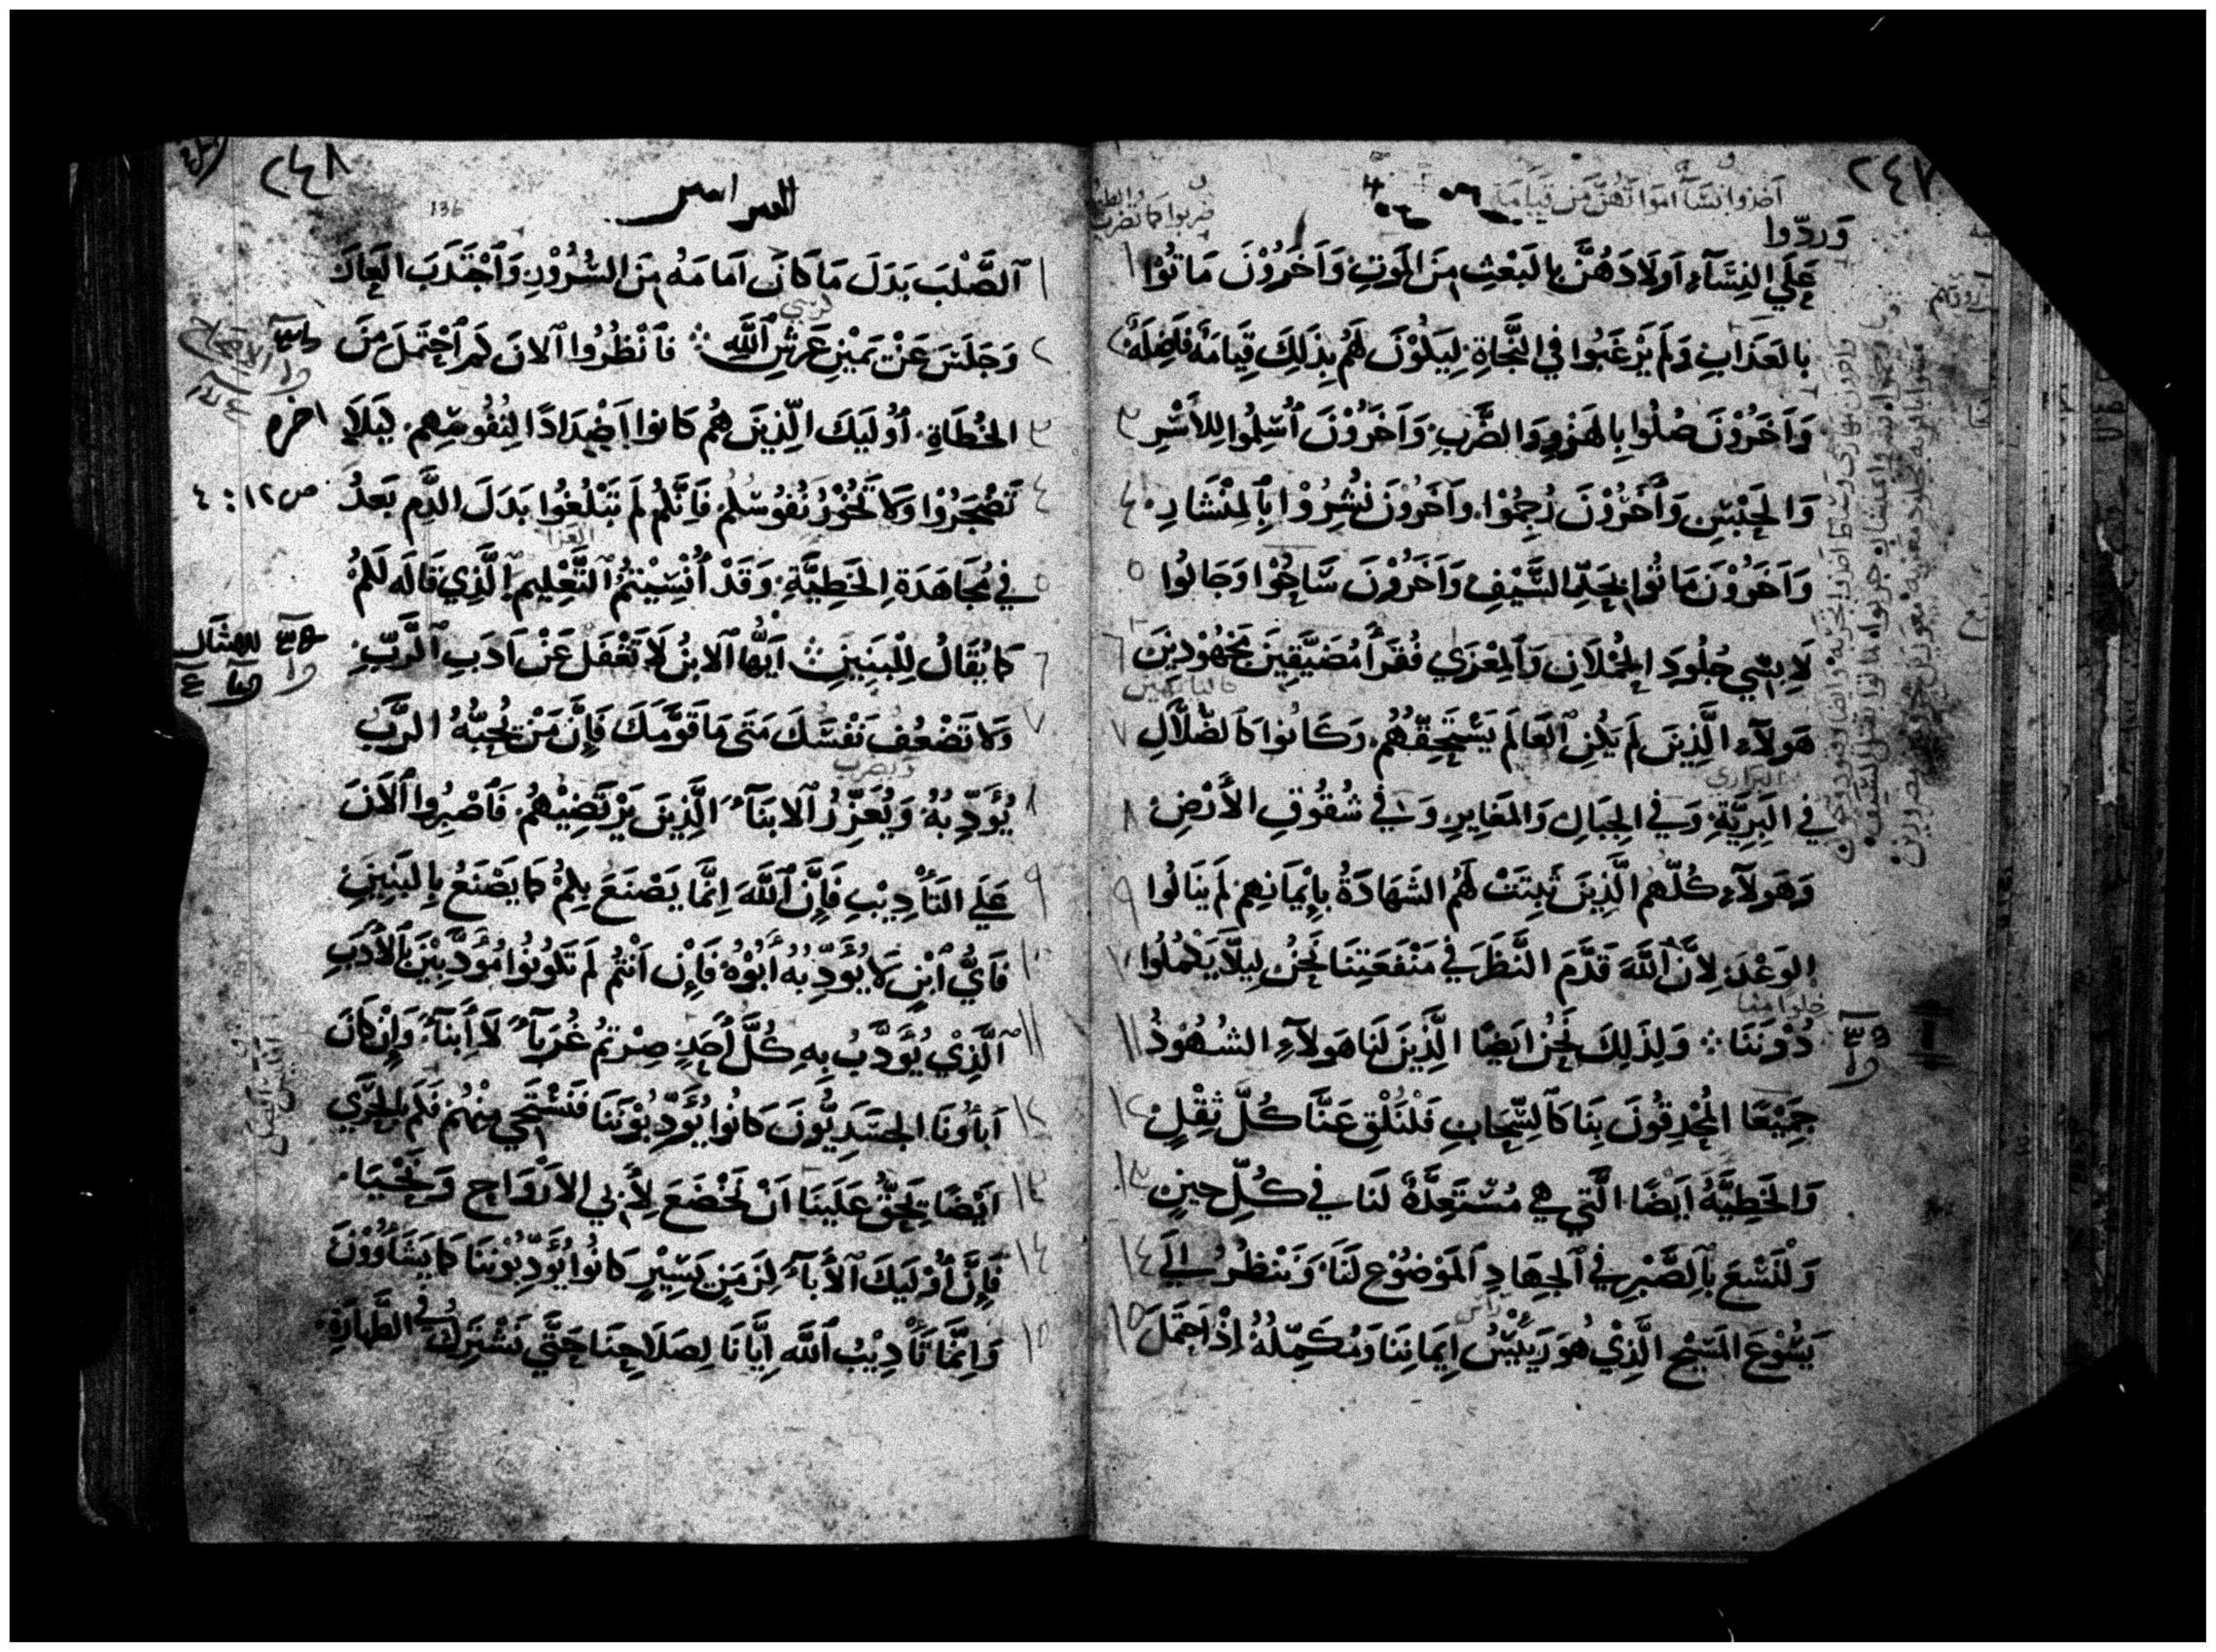 ٢٤٧
اخذوا نسآ امواتهن من قيامة
وردّوا
عَلَي النِسَآءِ اَولَادَهُنَّ بِالبَعْثِ مِنَ المَوتِ وَاَخَرُوْنَ مَاتُوْا ١
بِالعَذَابِ وَلَم يَرْغَبُوا فِي النَّجَاةِ لِيَكُوْنَ لَهُم بِذَلِكَ قِيَامَةً فَاضِلَةً ٢
وَاَخَرُوْنَ صُلُوا بِالهَزْوِ وَالضَّربِ وَاَخَرُوْنَ اُسْلِمُوا لِلاَسْرِ ٣
وَالحَبْسِ وَاَخَرُوْنَ رُجِمُوْا وَاَخَرُوْنَ نُشِرُوْا بِالمِنْشَارِ ٤
وَاَخَرُوْنَ مَاتُوا بِحَدِّ السَّيْفِ وَاَخَرُوْنَ سَاحُوْا وَجَالُوا ٥
لَابِسِي جُلُودِ الحُمْلَانِ وَالمِعْزَي فُقَرَآ مُضَيَّقِينَ مَجْهُوْدِيْنَ ٦
هَولَآءِ الَّذِينَ لَم يَكُنِ العَالَم يَسْتَحِقّهُم وَكَانُوا كَالضُّلَّالِ ٧
البراري
فِي البَرِيَّةِ وَفي الجِبَالِ وَالمَغَايِرِ وَفي شُقُوقِ الاَرْضِ ٨
وَهَولَآءِ كُلّهُم الَّذِينَ ثَبِتَتْ لَهُم الشَهَادَةُ بِاِيْمَانِهِم لَم يَنَالُوا ٩
الوَعْدَ لِاَنَّ اللَّهَ قَدَّمَ النَّظَرَ في مَنْفَعَتِنَا نَحْنُ لِيلَّا يَكْمُلُوا ١٠
دُوْنَنَا ܀ وَلِذَلِكَ نَحْنُ اَيضًا الَّذِيْنَ لَنَا هَولَآءِ الشُهُوْدُ ١١
جَمِيْعًا المُحْدِقُونَ بِنَا كَالسَّحَابِ فَلْنُلْقِ عَنَّا كُلَّ ثِقْلٍ ١٢
وَالخَطِيَّةُ اَيْضًا الَّتِي هي مُسْتَعِدَّةٌ لَنَا في كُلِّ حِينٍ ١٣
وَلْنَسْعَ بِالصَّبْرِ في الجِهَادِ المَوْضُوْعِ لَنَا وَنَنْظُرُ اِلَي ١٤
يَسُوْعَ المَسِيْحِ الَّذِيْ هُوَ رَيِيْسُ اِيمَانِنَا وَمُكَمِّلُهُ اِذْ احتَمَلَ ١٥
٢٤٨
136
١ الصَّلْبَ بَدَلَ مَا كَانَ اَمَامَهُ مِنَ السُّرُوْرِ وَاَجْتَذَبَ العَارَ
كرسي
٢ وَجَلَسَ عَنْ يَمِيْنِ عَرشِ اللَّهِ ܀ فَاَنْظُرُوا الانَ كَم اَحْتَمَلَ مِنَ
٣ الخُطَاةِ اُولَيكَ الَّذِينَ هُم كَانُوا اَضْدَادًا لِنُفُوسِهِم لِيَلَا
٤ تَضْجَرُوْا وَلَا تَخُوْرُ نُفُوسُكُم فَاِنَّكُم لَم تَبْلُغُوا بَدَلَ الدَّمِ بَعدُ
ص ١٢ : ٤
العزا
٥ في مُجَاهَدَةِ الخَطِيَّةِ وَقَدْ اُنْسِيْتُم التَّعْلِيمَ الَّذِي قَالَه لَكُمْ
٦ كَمَا يُقَالُ لِلْبَنِينَ ܀ اَيُّهَا الابنُ لَا تَغْفَل عَنْ اَدَبِ الرَّبِّ
٧ وَلَا تَضْعُف نَفْسُكَ مَتَى مَا قَوَّمَكَ فَاِنَّ مَنْ يُحِبُّهُ الرَّبُّ
ويضرب
٨ يُوَدِّبُهُ وَيُعَزِّرُ الابنَآءَ الَّذِينَ يَرْتَضِيْهُم فَاصْبِرُوا الاَنَ
٩ عَلَي التَاْدِيْبِ فَاِنَّ اللَّهَ اِنَّمَا يَصْنَعُ بِكُم كَمَا يَصْنَعُ بِالبَنِينَ
١٠ فَاَيُّ ابْنٍ لَا يُوَدِّبُهُ اَبُوْهُ فَاِن اَنْتُم لَم تَكُونُوا مُوَدَّبِيْنَ بِالاَدَبِ
١١ الَّذِيْ يُوَدَّبُ بِهِ كُلُّ اَحَدٍ صِرْتُم غُرَبَآءً لَا اَبنَآءً وَاِنْ كَانَ
١٢ آبَاوُنَا الجسَدِيُّونَ كَانُوا يُوَدِّبُوْنَنَا فَنَسْتَحِي مِنْهُم فَكَم بِالحَرِي
١٣ اَيْضًا يَحِقُّ عَلَيْنَا اَنْ نَخْضَعَ لِاَبِي الاَرْوَاحِ وَنَحْيَا
١٤ فَاِنَّ اُوْلَيكَ الاَبآءَ لِزَمَنٍ يَسِيْرٍ كَانُوا يُوَدِّبُوْنَنَا كَمَا يَشَآوُوْنَ
١٥ وَاِنَّمَا تَاْدِيْبُ اللَّهِ اِيَّانَا لِصَلَاحِنَا حَتَّي نَشْتَرِكَ في الطَّهَارَةِ